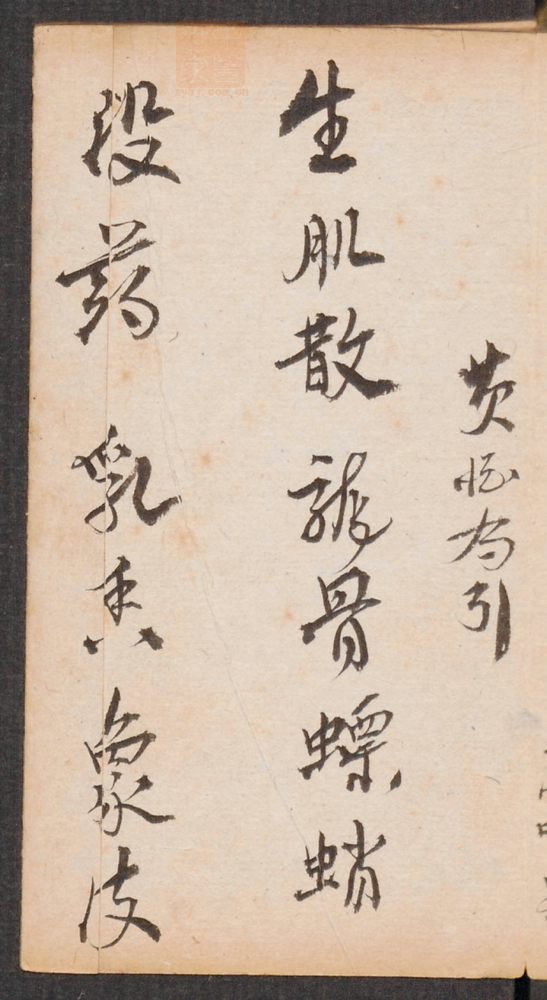 黄酒为引
生肌散 龙骨 螵蛸
没药 乳香 象皮